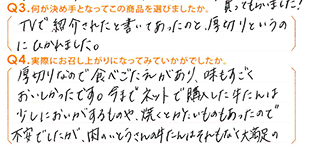 買ってもらいました!
Q3.何が決め手となってこの商品を選びましたか。
TVで紹介されたと書いてあったのと、厚切りというの
にひかれました。
Q4.実際にお召し上がりになってみていかがでしたか。
厚切りなので食べごたえがあり、味もすごく
おいしかったです。今までネットで購入した牛たんは
少しにおいがするものや、焼くとかたいものもあったので
不安でしたが、肉のいとうさんの牛たんはそれもなく大満足の